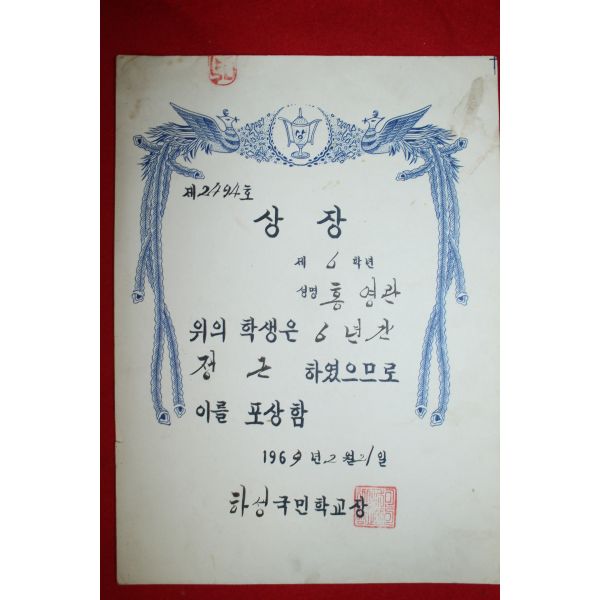 상
제2494호
상 장
제 6 학년
성명 홍 영 관
위의 학생은 6년간
정 근 하였으므로
이를 포상함
1969년 2월 21일
하성국민학교장